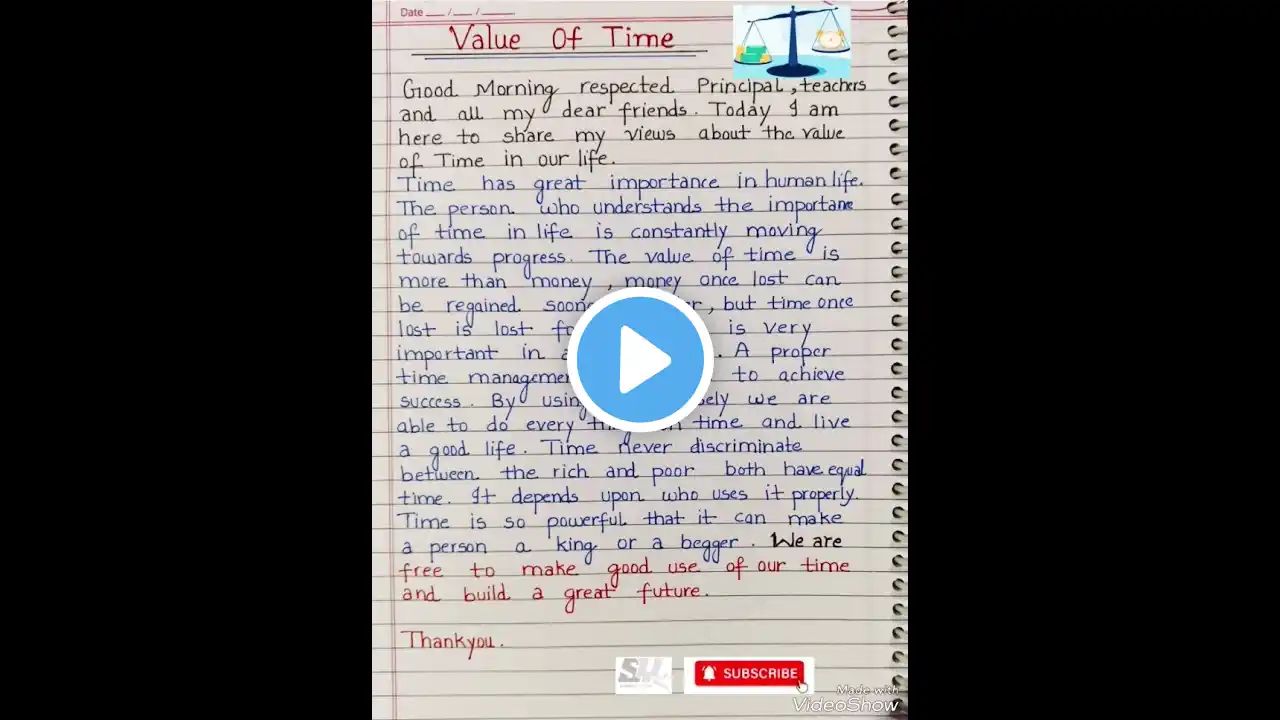 Date __ / __ / ____
Value Of Time
Good Morning respected Principal, teachers
and all my dear friends. Today I am
here to share my views about the value
of Time in our life.
Time has great importance in human life.
The person who understands the importane
of time in life is constantly moving
towards progress. The value of time is
more than money, money once lost can
be regained but time once
lost is lost is very
important in A proper
time to achieve
success. By we are
able to do every time and live
a good life. Time never discriminate
between the rich and poor both have equal
time. It depends upon who uses it properly.
Time is so powerful that it can make
a person a king or a begger. We are
free to make good use of our time
and build a great future.
Thankyou.
SUBSCRIBE
Made with
VideoShow